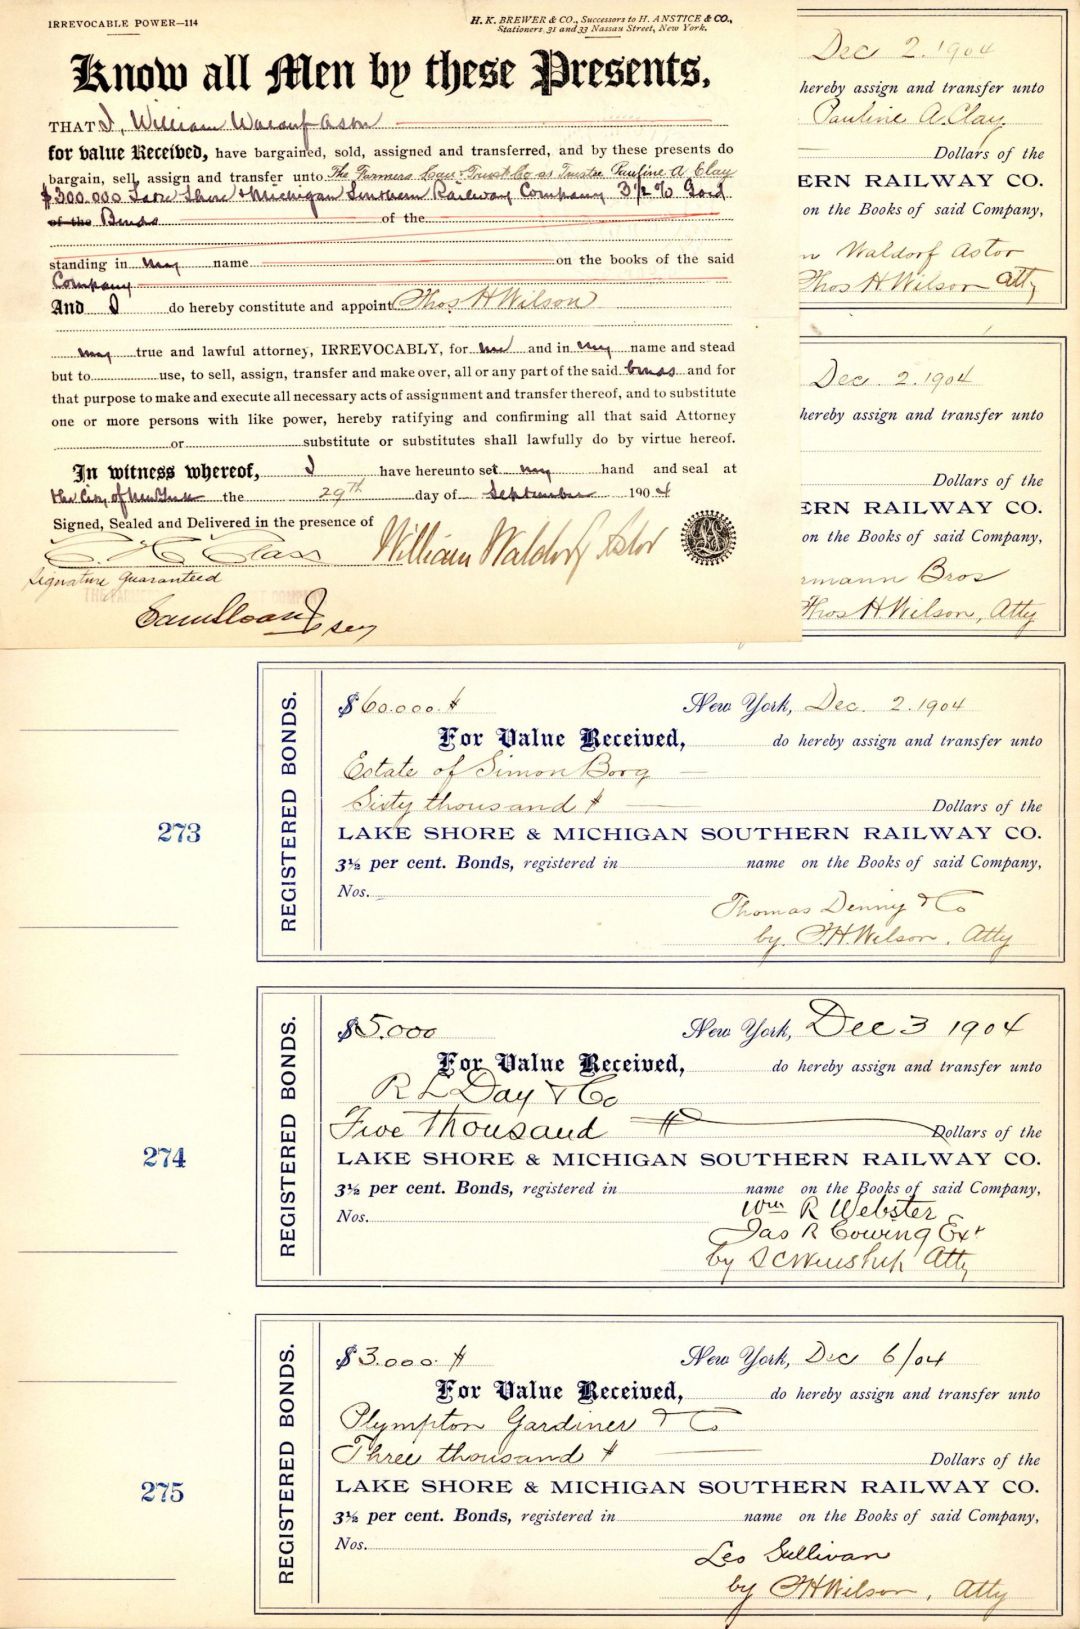 IRREVOCABLE POWER—114
H. K. BREWER & CO., Successors to H. ANSTICE & CO.,
Stationers, 31 and 33 Nassau Street, New York.
Know all Men by these Presents,
THAT I, William Waldorf Astor
for value Received, have bargained, sold, assigned and transferred, and by these presents do
bargain, sell, assign and transfer unto The Farmers Loan & Trust Co as Trustee Pauline A Clay
$300.000 Lake Shore & Michigan Southern Railway Company 3½% Gold
of the Bonds of the
standing in my name on the books of the said
Company
And I do hereby constitute and appoint Thos H Wilson
my true and lawful attorney, IRREVOCABLY, for me and in my name and stead
but to use, to sell, assign, transfer and make over, all or any part of the said bonds and for
that purpose to make and execute all necessary acts of assignment and transfer thereof, and to substitute
one or more persons with like power, hereby ratifying and confirming all that said Attorney
or substitute or substitutes shall lawfully do by virtue hereof.
In witness whereof, I have hereunto set my hand and seal at
the City of New York the 29th day of September 1904
Signed, Sealed and Delivered in the presence of
William Waldorf Astor
Signature Guaranteed
Dec 2. 1904
hereby assign and transfer unto
Pauline A. Clay
Dollars of the
ERN RAILWAY CO.
on the Books of said Company,
n Waldorf Astor
Thos H Wilson Atty
Dec. 2. 1904
hereby assign and transfer unto
Dollars of the
ERN RAILWAY CO.
on the Books of said Company,
rmann Bros
Thos H Wilson, Atty
273
REGISTERED BONDS.
$60.000. New York, Dec. 2. 1904
For Value Received, do hereby assign and transfer unto
Estate of Simon Borg
Sixty thousand Dollars of the
LAKE SHORE & MICHIGAN SOUTHERN RAILWAY CO.
3½ per cent. Bonds, registered in name on the Books of said Company,
Nos.
Thomas Denny & Co
by T.H. Wilson, Atty
274
REGISTERED BONDS.
$5.000 New York, Dec 3 1904
For Value Received, do hereby assign and transfer unto
R L Day & Co
Five thousand Dollars of the
LAKE SHORE & MICHIGAN SOUTHERN RAILWAY CO.
3½ per cent. Bonds, registered in name on the Books of said Company,
Nos.
Wm R Webster
Jas R Cowing Exr
by S C Winship Atty
275
REGISTERED BONDS.
$3.000. New York, Dec 6/04
For Value Received, do hereby assign and transfer unto
Plympton Gardiner & Co
Three thousand Dollars of the
LAKE SHORE & MICHIGAN SOUTHERN RAILWAY CO.
3½ per cent. Bonds, registered in name on the Books of said Company,
Nos.
Leo Sullivan
by T H Wilson, Atty